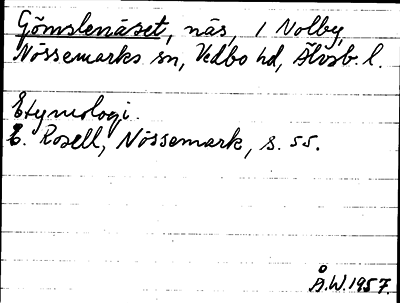 Gömslenäset, näs, i Nolby,
Nössemarks sn, Vedbo hd, Älvsb. l.
Etymologi.
E. Rosell, Nössemark, s. 55.
Å.W. 1957.